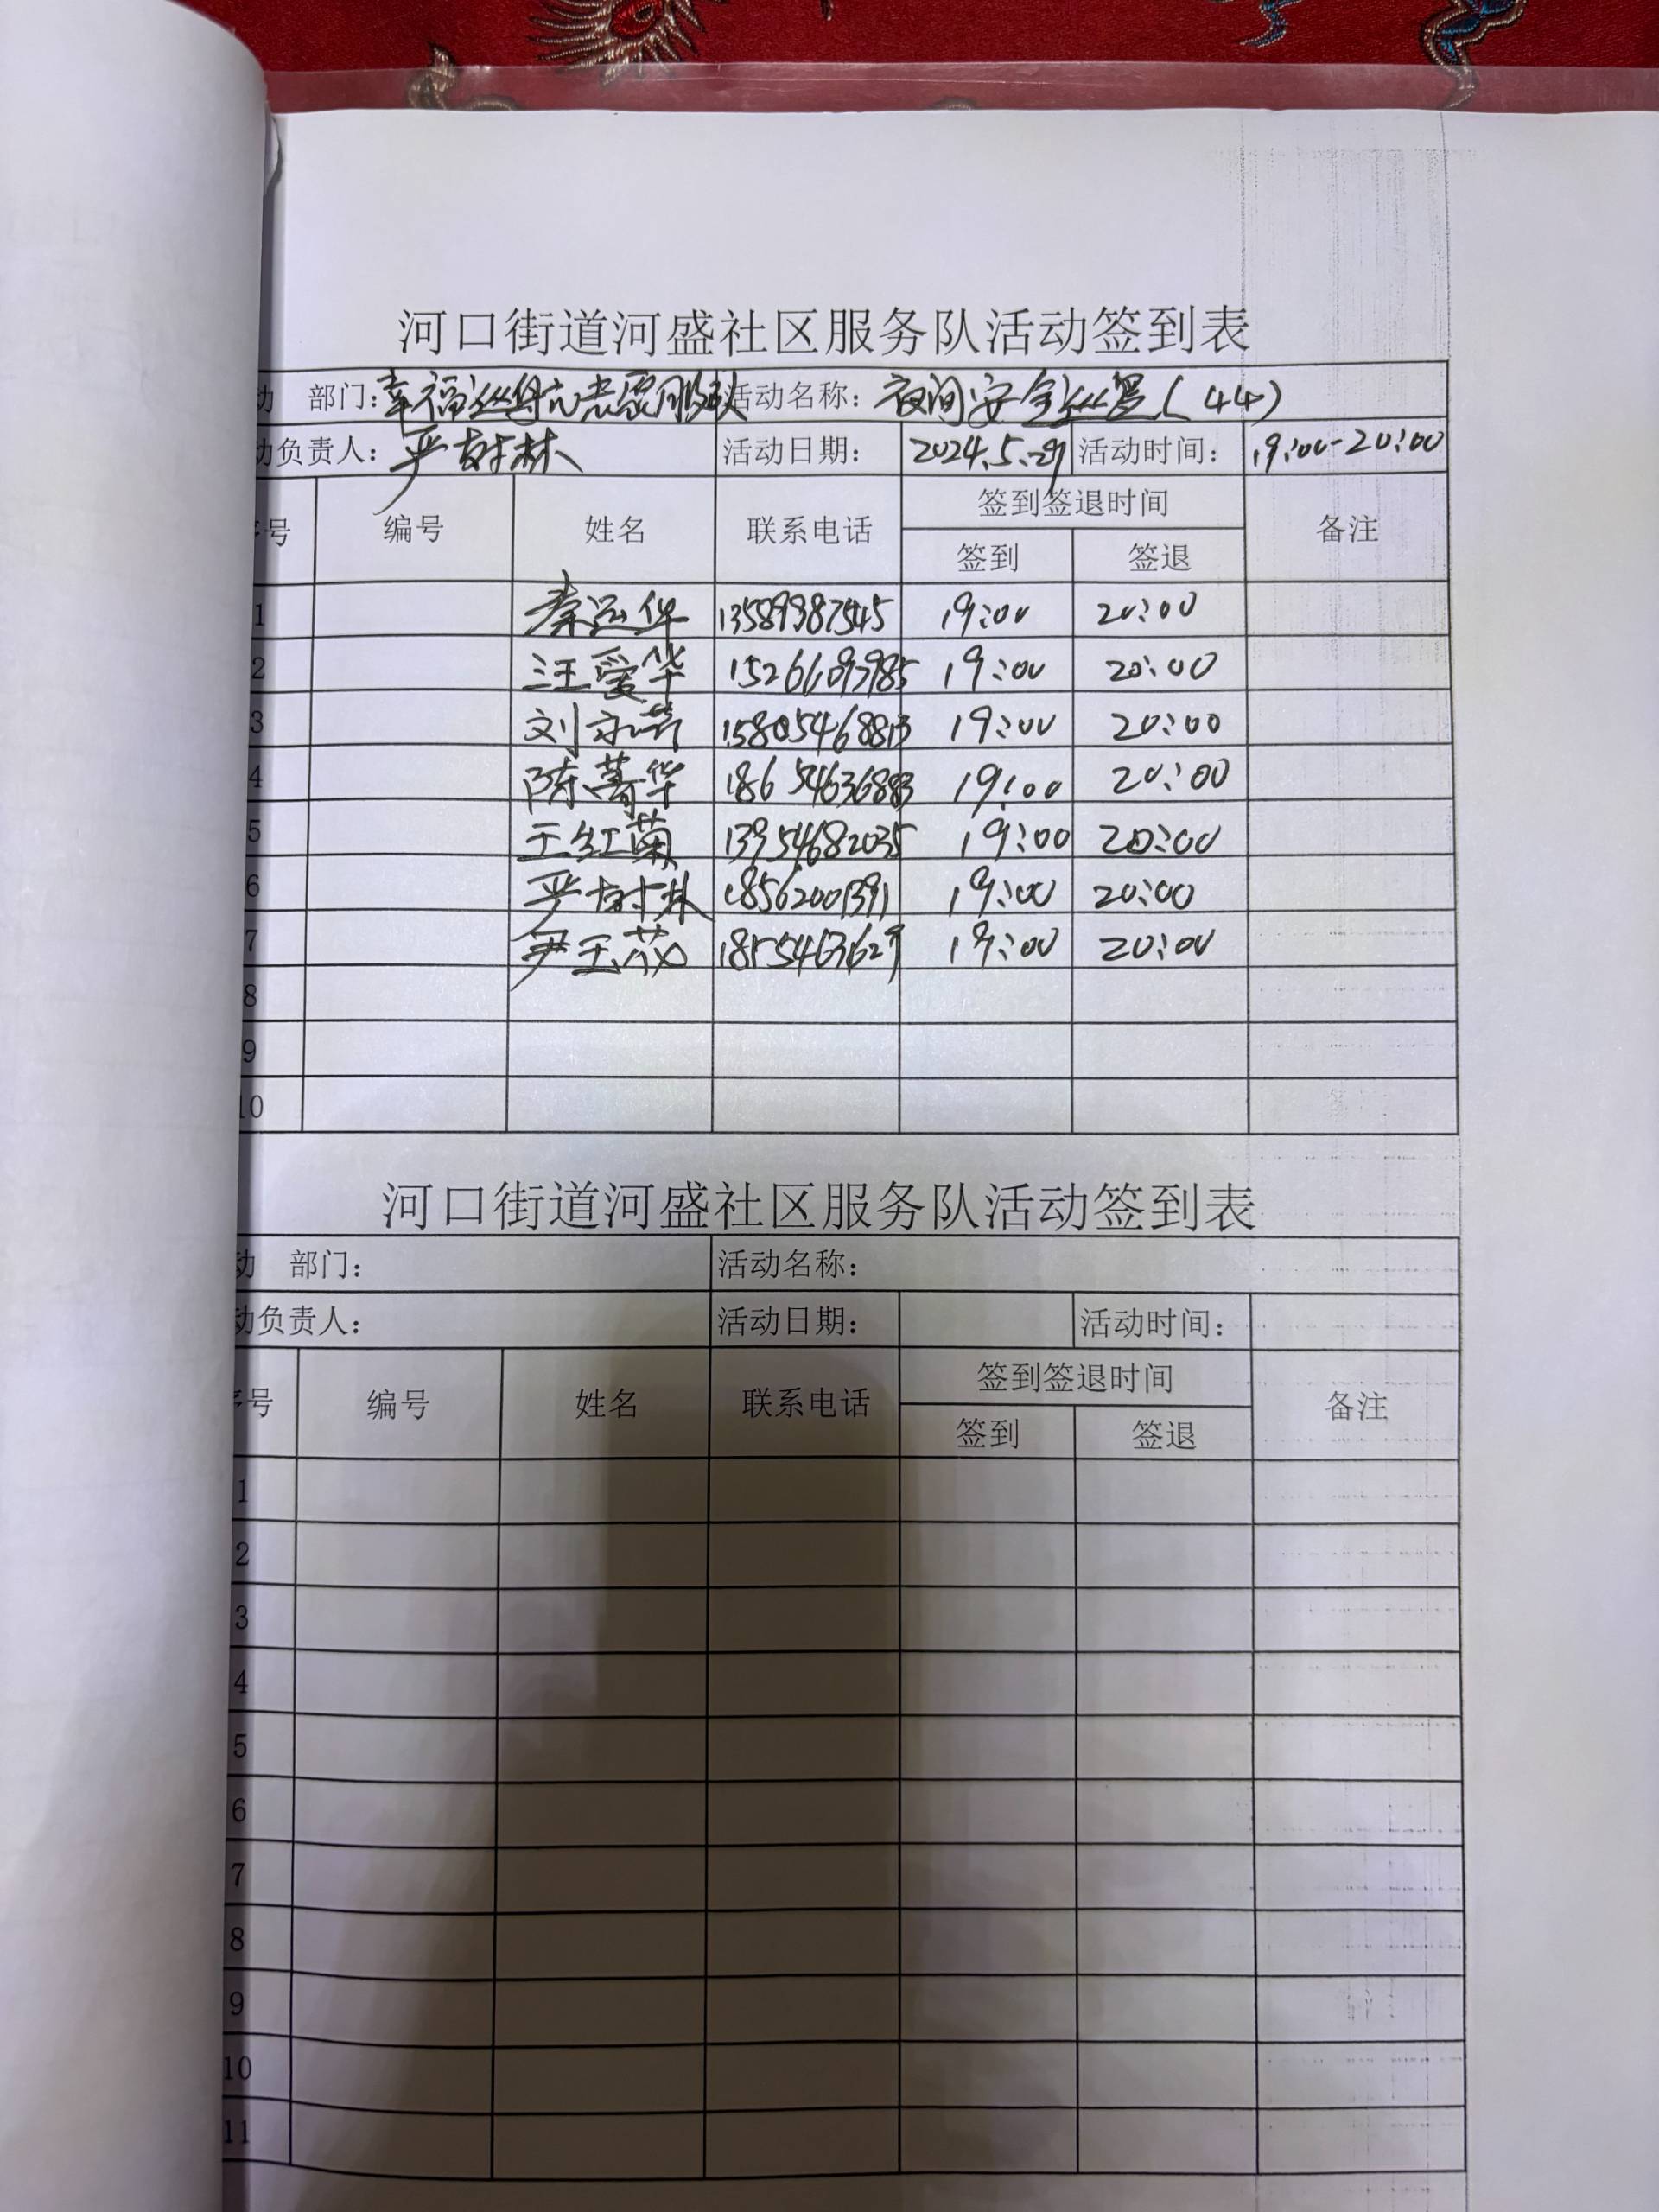 河口街道河盛社区服务队活动签到表
动 部门: 幸福 志愿服务队 活动名称: 夜间安全巡逻(44)
动负责人: 严树林 活动日期: 2024.5.29 活动时间: 19:00-20:00
序号 编号 姓名 联系电话 签到签退时间 备注
签到 签退
1 秦运华 13589987545 19:00 20:00
2 汪爱华 15266097985 19:00 20:00
3 刘 19:00 20:00
4 陈菁华 18654636883 19:00 20:00
5 王红菊 13954682035 19:00 20:00
6 严树林 18562001391 19:00 20:00
7 尹玉芬 19:00 20:00
8
9
10
河口街道河盛社区服务队活动签到表
动 部门: 活动名称:
动负责人: 活动日期: 活动时间:
序号 编号 姓名 联系电话 签到签退时间 备注
签到 签退
1
2
3
4
5
6
7
8
9
10
11